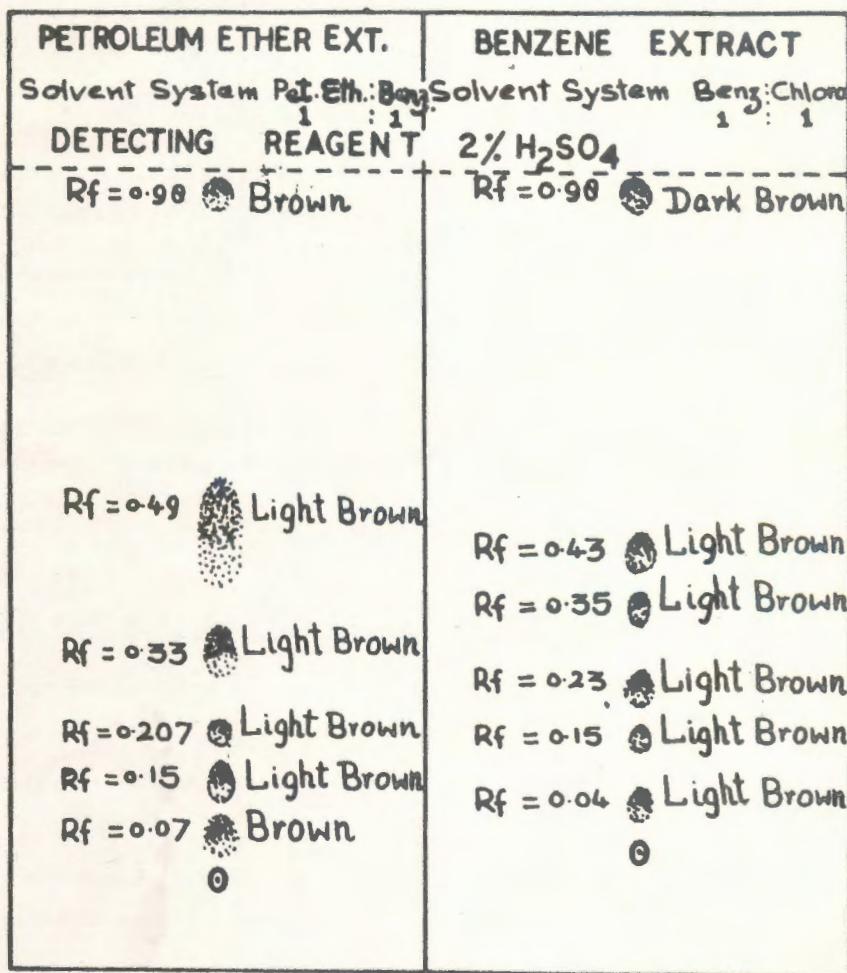 PETROLEUM ETHER EXT.
Solvent System Pet. Eth.: Benz.
1 : 1
DETECTING REAGENT
Rf = 0.98 Brown
Rf = 0.49 Light Brown
Rf = 0.33 Light Brown
Rf = 0.207 Light Brown
Rf = 0.15 Light Brown
Rf = 0.07 Brown
BENZENE EXTRACT
Solvent System Benz:Chloro
1 : 1
2% H₂SO₄
Rf = 0.98 Dark Brown
Rf = 0.43 Light Brown
Rf = 0.35 Light Brown
Rf = 0.23 Light Brown
Rf = 0.15 Light Brown
Rf = 0.04 Light Brown